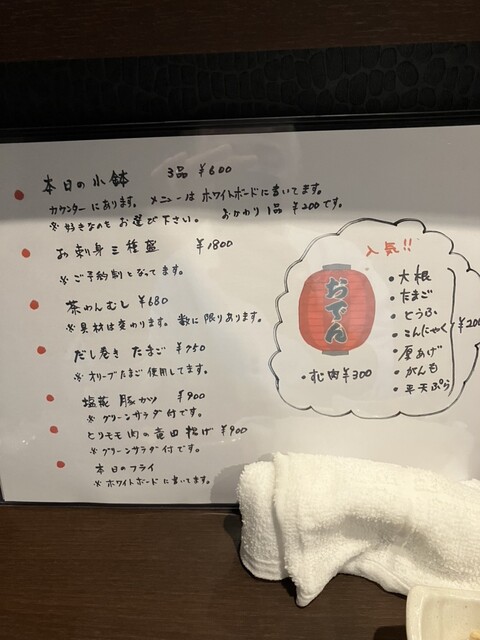 本日の小鉢 3品 ¥600
カウンターにあります。メニューはホワイトボードに書いてます。
※好きなのをお選び下さい。 おかわり1品 ¥200です。
お刺身三種盛 ¥1800
※ご予約制となってます。
茶わんむし ¥680
※具材は変わります。数に限りあります。
だし巻きたまご ¥750
※オリーブたまご使用してます。
塩糀 豚カツ ¥900
※グリーンサラダ付です。
とりモモ肉の竜田揚げ ¥900
※グリーンサラダ付です。
本日のフライ
※ホワイトボードに書いてます。
人気!!
おでん
・大根
・たまご
・とうふ
・こんにゃく
・厚あげ
・がんも
・平天ぷら
¥200
・すじ肉 ¥300